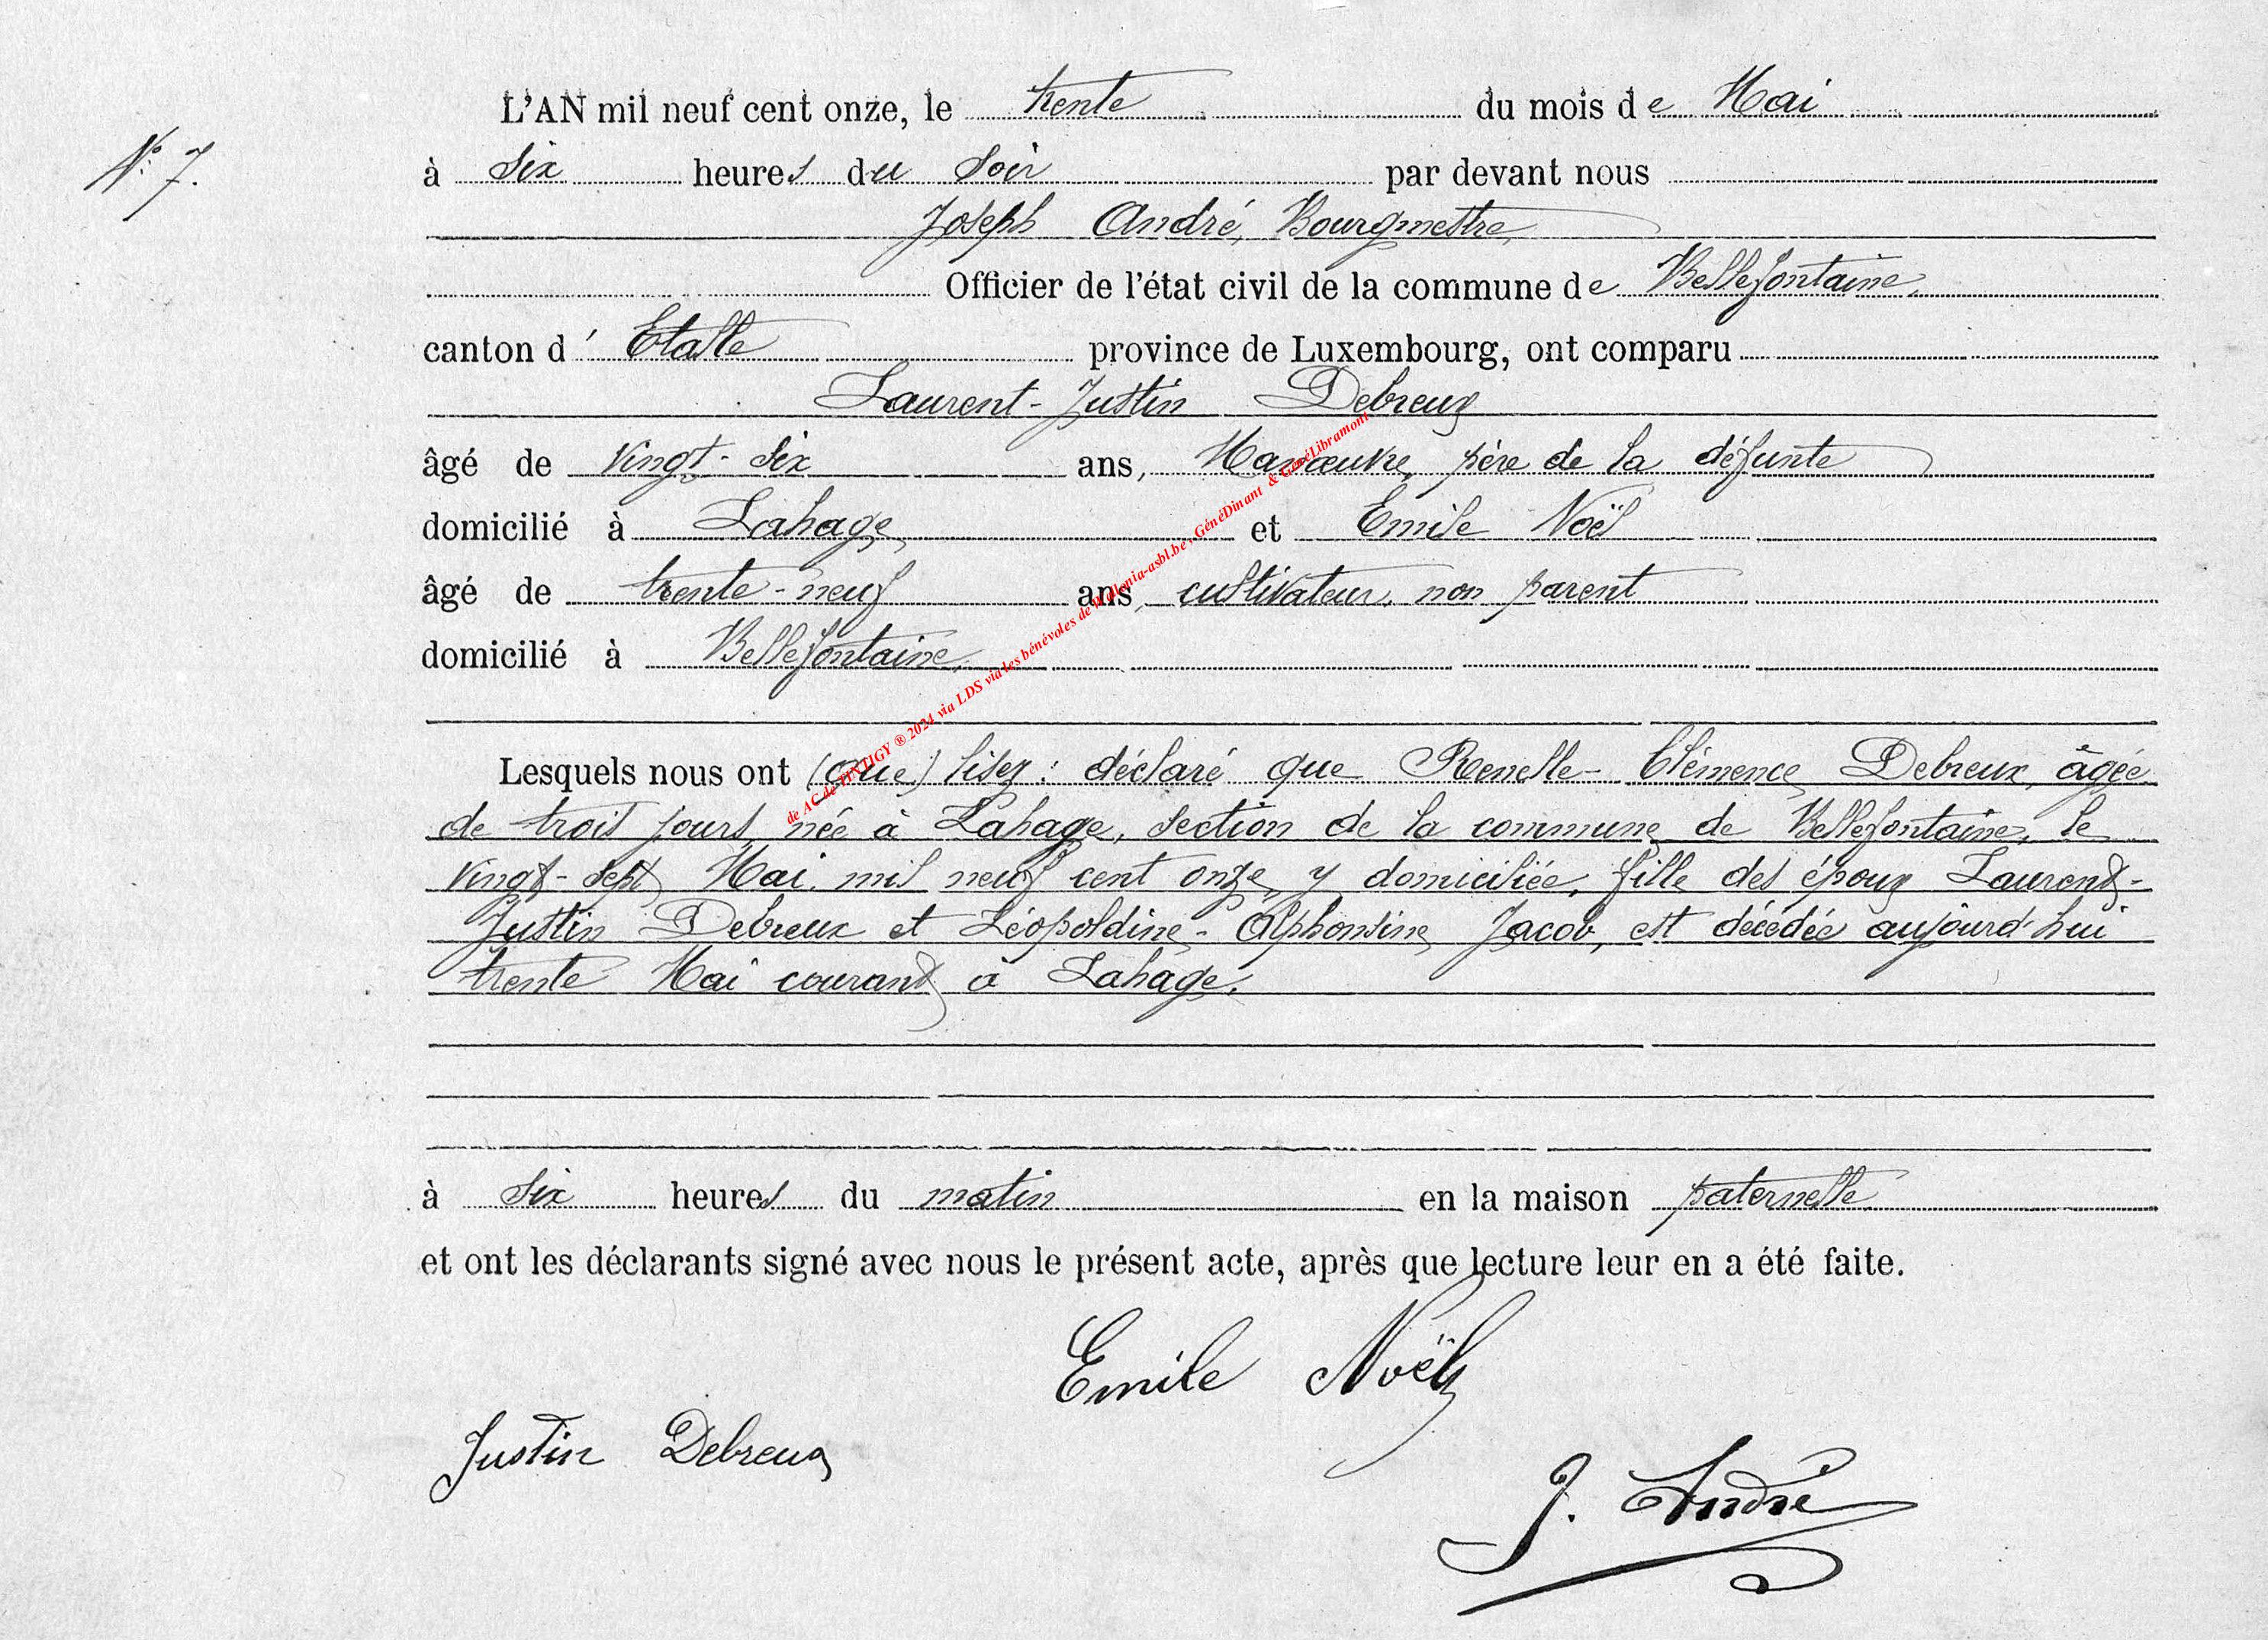 N° 7.
L'AN mil neuf cent onze, le trente du mois de Mai
à six heures du soir par devant nous
Joseph André, Bourgmestre
Officier de l'état civil de la commune de Bellefontaine,
canton d'Etalle province de Luxembourg, ont comparu
Laurent-Justin Debreux
âgé de vingt-six ans, Manœuvre, père de la défunte
domicilié à Lahage et Emile Noël
âgé de trente-neuf ans, cultivateur, non parent
domicilié à Bellefontaine,
Lesquels nous ont (que) lisez : déclaré que Renelle-Clémence Debreux, âgée
de trois jours, née à Lahage, section de la commune de Bellefontaine, le
vingt-sept Mai mil neuf cent onze, y domiciliée, fille des époux Laurent-
Justin Debreux et Léopoldine-Alphonsine Jacob, est décédée aujourd'hui
trente Mai courant à Lahage.
à six heures du matin en la maison paternelle
et ont les déclarants signé avec nous le présent acte, après que lecture leur en a été faite.
Emile Noël
Justin Debreux
J. André
de AC de TINTIGY ® 2024 via LDS via les bénévoles de Wallonia-asbl.be, GénéDinant & GénéLibramont